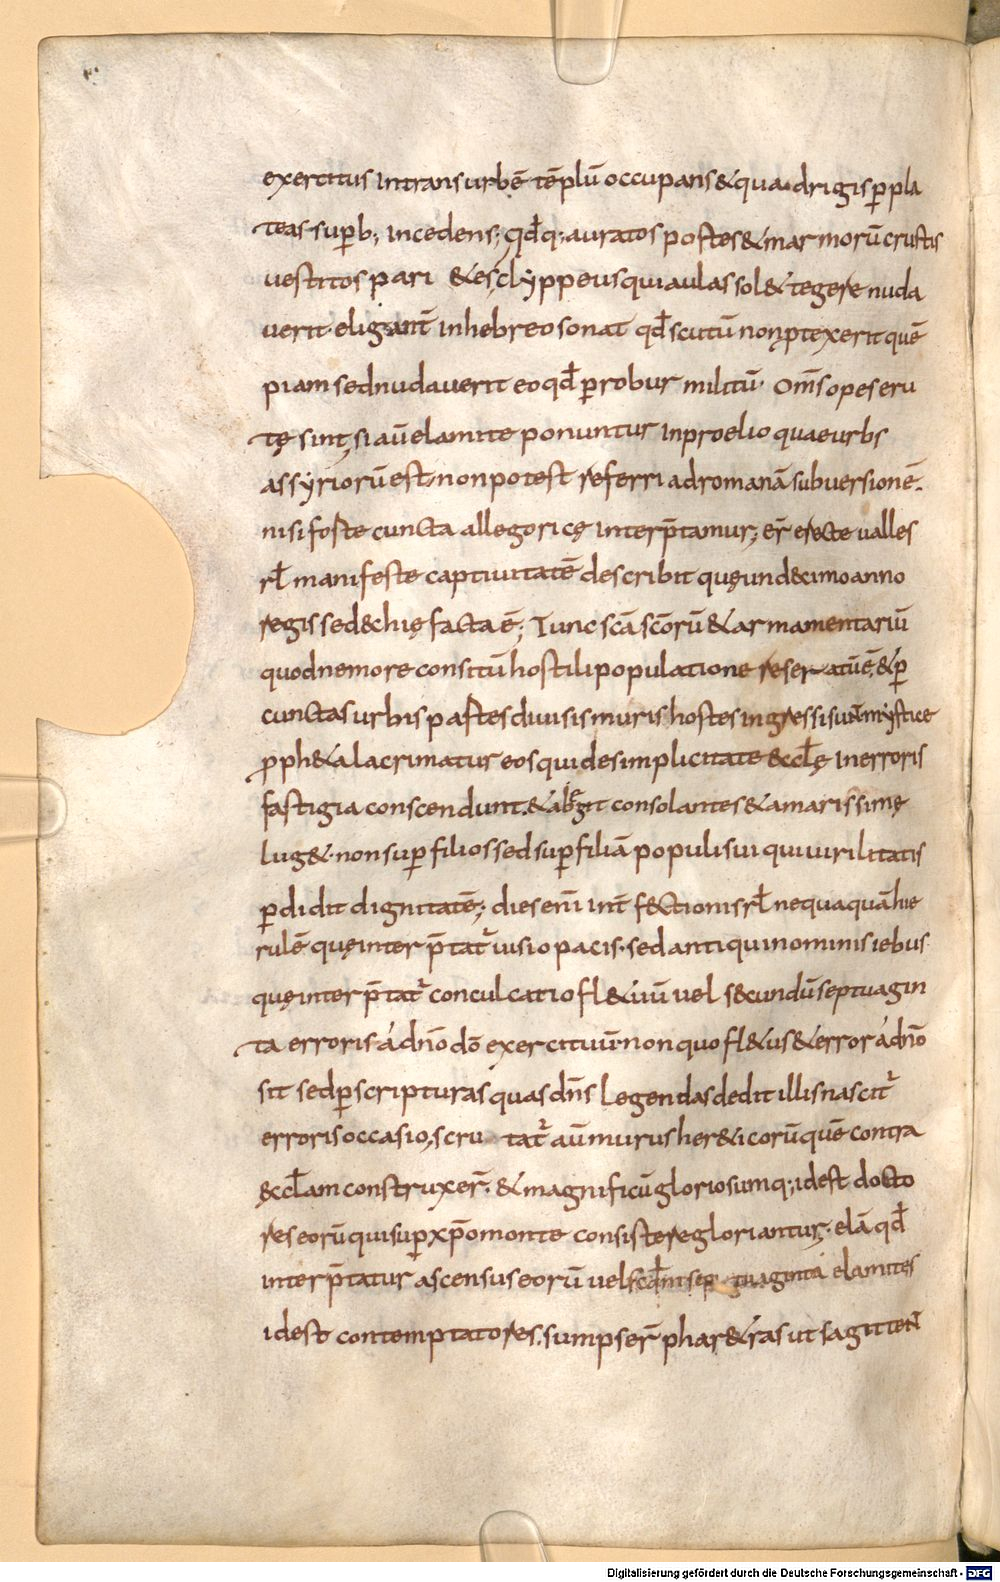 exercitus intrans urbē tēplū occupans & quadrigis p̄ pla
teas sup̄b; incedens; qđq; auratos postes & marmorū crustis
vestitos pari &es clyppeus qui aulas sol& tegere nuda
verit eligant̄ in hebreo sonat qđ scutū non p̄texerit quē
piam sed nudauerit eo qđ p̄ robur militū. Om̄s opes eru
tę sint, si aū elamite ponuntur in proelio quae urbs
assyriorū est, non potest referri ad romanā subuersionē.
nisi foste cuncta allegoricę interp̄tamur; er̄ erecte ualles
rł manifeste captiuitatē describit quę und&cimo anno
regis sed&chię facta ē; Tunc scā scōrū & armamentariū
quod nemore consitū hostili populatione reseratū ē, & p̄
cunctas urbis pastes diuisis muris hostes ingressi sun̄ mystice
p̄ph&a lacrimatur eos qui de simplicitate &cclę in erroris
fastigia conscendunt. & abigit consolantes & amarissimę
lug& non sup̄ filios sed sup̄ filiā populi sui qui uirilitatis
p̄didit dignitatē; dies enī int̄f&ctionis rł nequaquā hie
rulē quę interp̄tat᷑ uisio pacis. sed antiqui nominis iebus
quę interp̄tat᷑ conculcatio fl&uū uel s&cundū septuagin
ta erroris á dn̄o dō exercituū non quo fl&us & error á dn̄o
sit sed p̄ scripturas quas dn̄s legendas dedit illis nascit᷑
erroris occasio, scru tat᷑ aū murus her&icorū quē contra
&ccłam construxer̄. & magnificū gloriosumq; idest docto
res eorū qui sup̄ xp̄o monte consistere gloriantur; elā qđ
interp̄tatur ascensus eorū uel scd̄m sep tuaginta elamites
idest contemptatores. sumpser̄ phar&ras ut sagitten̄
Digitalisierung gefördert durch die Deutsche Forschungsgemeinschaft - DFG